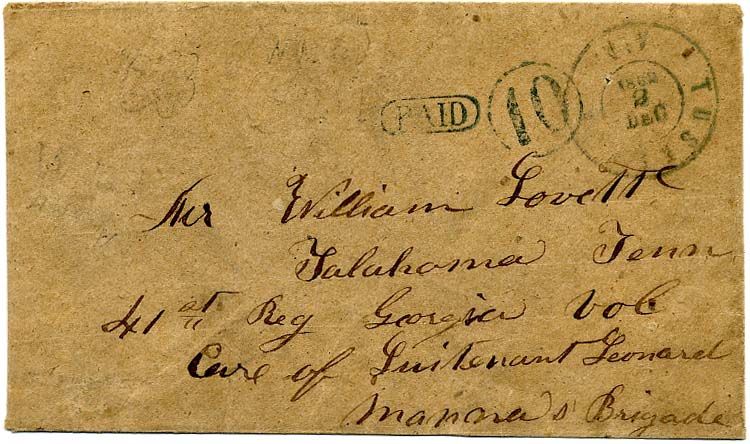 PAID 10
1862
2
DEC
Mr William Lovett
Talahoma Tenn
41st Reg Georgia Vol
Care of Luitenant Leonard
Mannas Brigade